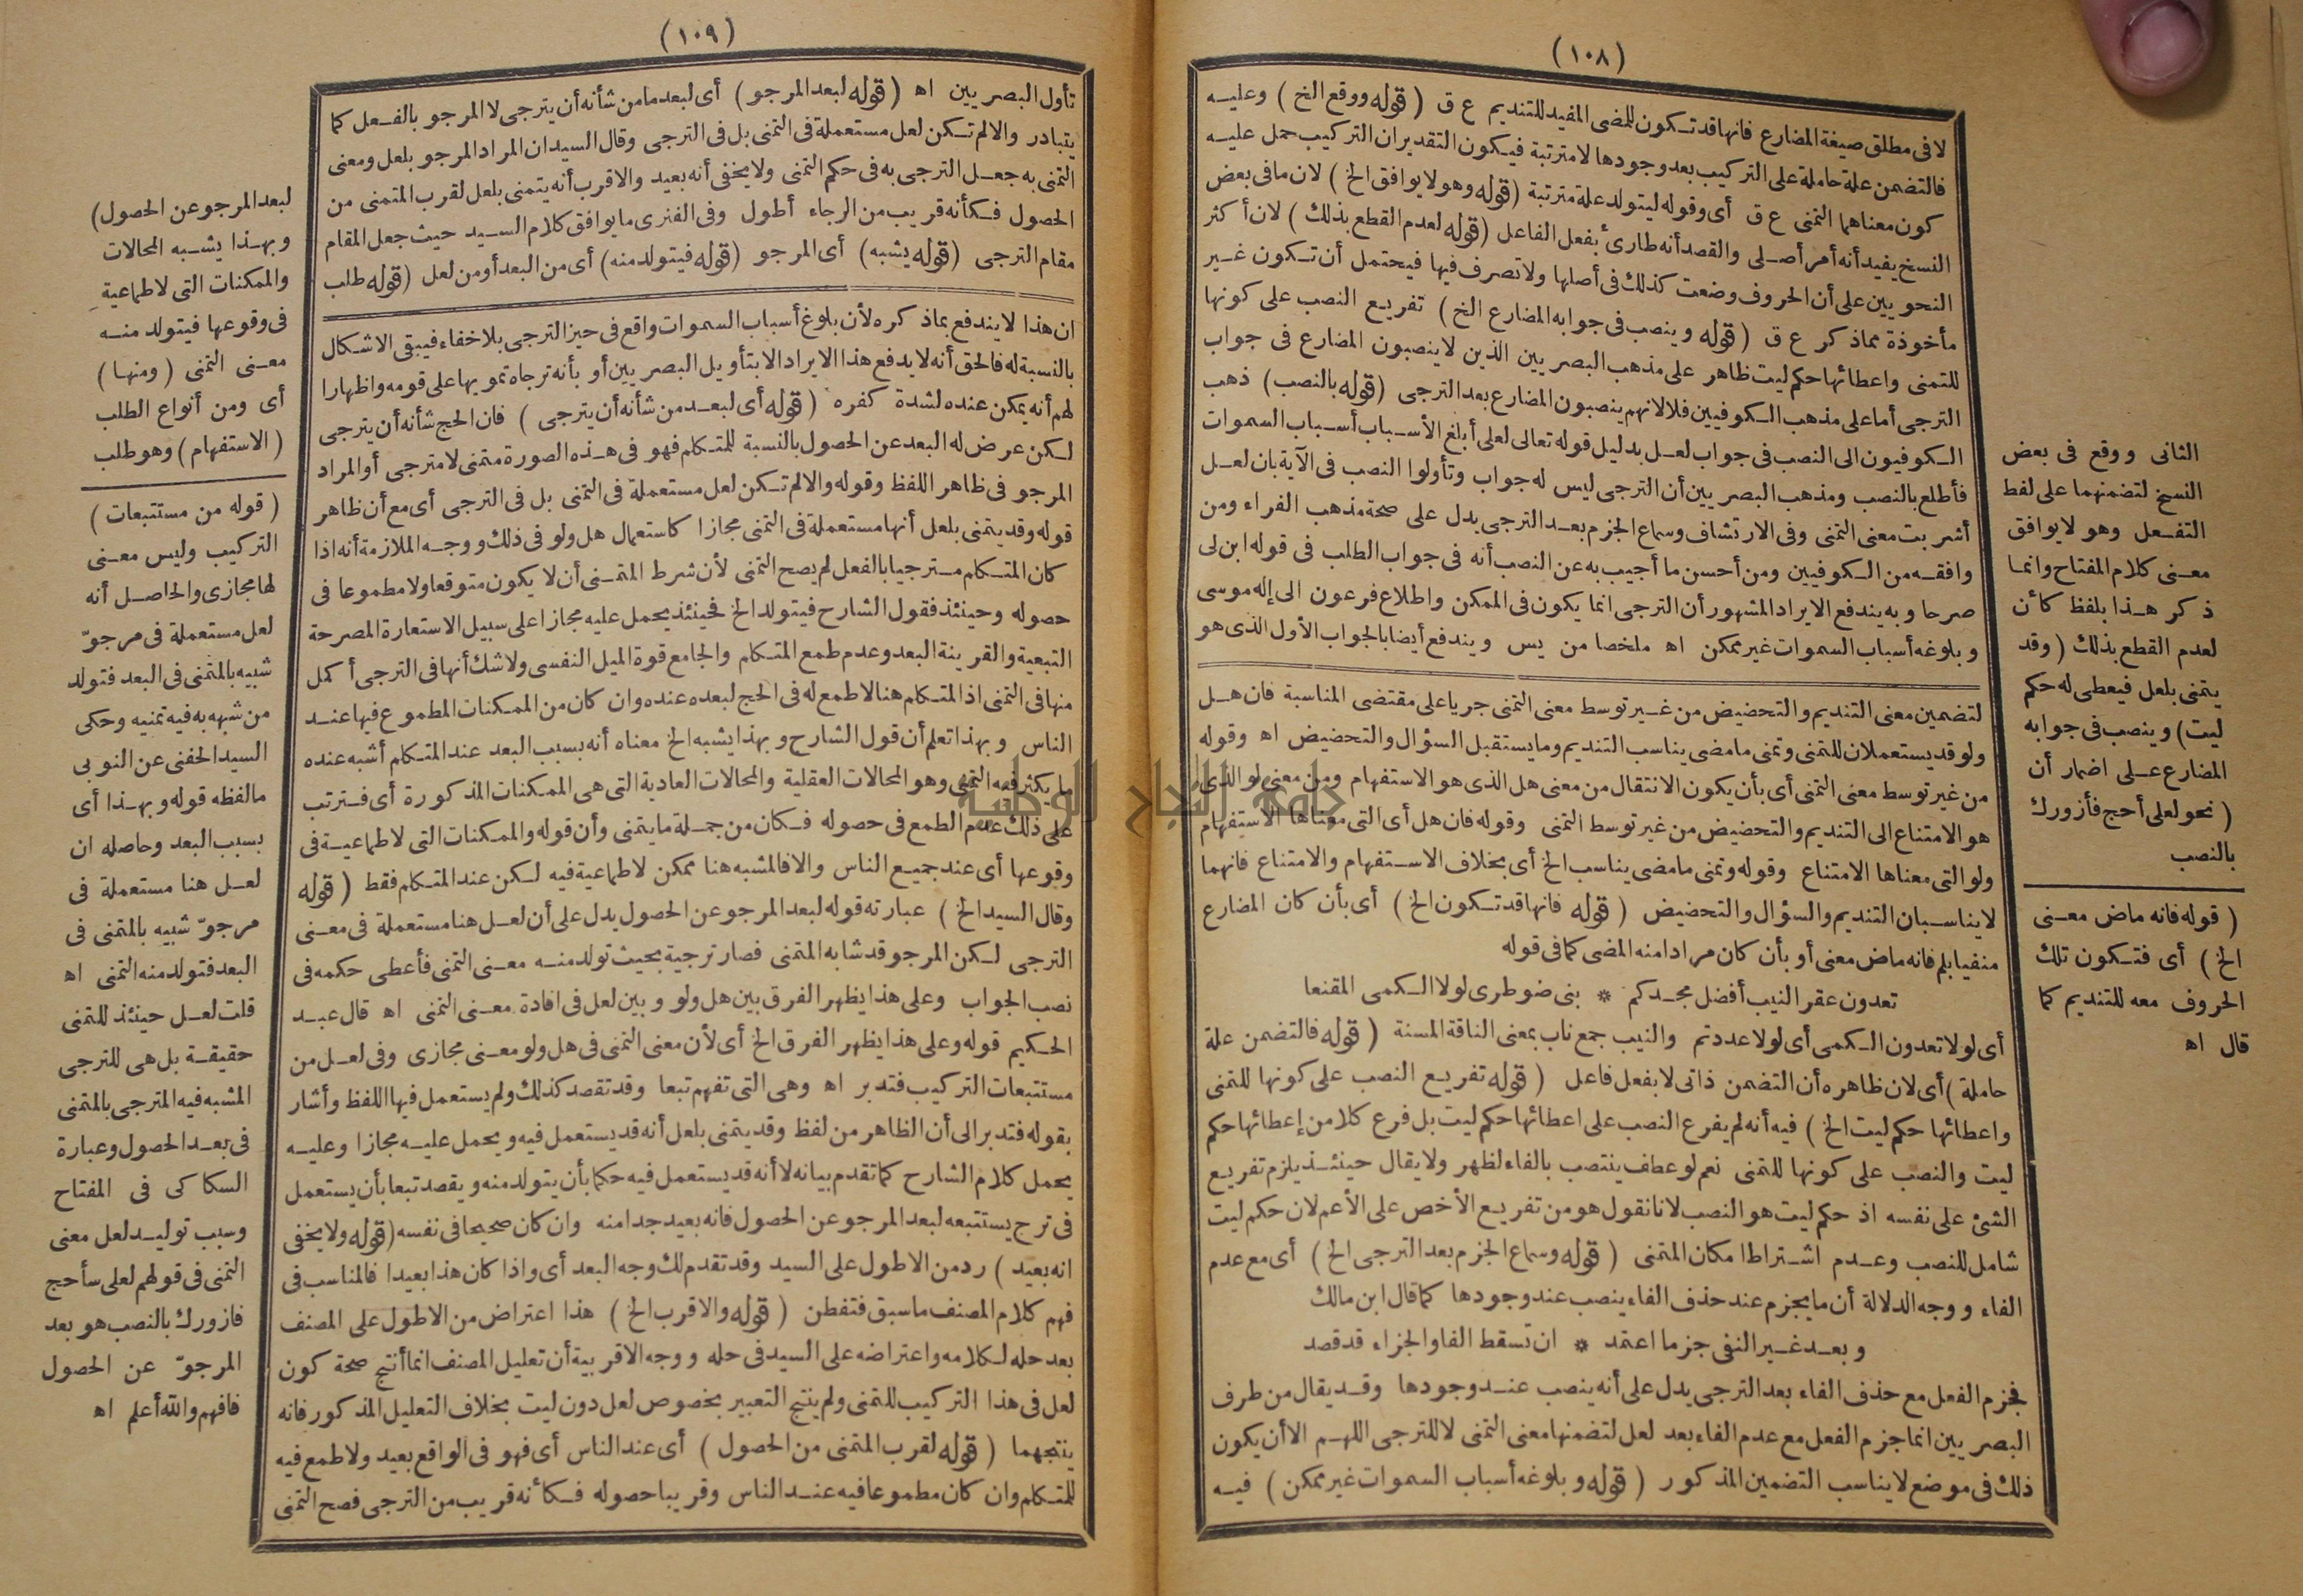 (١٠٨)
لا فى مطلق صيغة المضارع فانها قد تكون للمضى المفيد للتنديم ع ق (قوله ووقع الخ) وعليه
فالتضمن علة حاملة على التركيب بعد وجودها لا مترتبة فيكون التقدير ان التركيب حمل عليه
كون معناهما التمنى ع ق أى وقوله ليتولد علة مترتبة (قوله وهو لا يوافق الخ) لان ما فى بعض
النسخ يفيد أنه أمر أصلى والقصد أنه طارئ بفعل الفاعل (قوله لعدم القطع بذلك) لان أكثر
النحويين على أن الحروف وضعت كذلك فى أصلها ولا تصرف فيها فيحتمل أن تكون غير
مأخوذة مما ذكر ع ق (قوله وينصب فى جوابه المضارع الخ) تفريع النصب على كونها
للتمنى واعطائها حكم ليت ظاهر على مذهب البصريين الذين لا ينصبون المضارع فى جواب
الترجى أما على مذهب الكوفيين فلا لانهم ينصبون المضارع بعد الترجى (قوله بالنصب) ذهب
الكوفيون الى النصب فى جواب لعل بدليل قوله تعالى لعلى أبلغ الأسباب أسباب السموات
فأطلع بالنصب ومذهب البصريين أن الترجى ليس له جواب وتأولوا النصب فى الآية بان لعل
أشربت معنى التمنى وفى الارتشاف وسماع الجزم بعد الترجى يدل على صحة مذهب الفراء ومن
وافقه من الكوفيين ومن أحسن ما أجيب به عن النصب أنه فى جواب الطلب فى قوله ابن لى
صرحا وبه يندفع الايراد المشهور أن الترجى انما يكون فى الممكن واطلاع فرعون الى إله موسى
وبلوغه أسباب السموات غير ممكن اه ملخصا من يس ويندفع أيضا بالجواب الأول الذى هو
لتضمين معنى التنديم والتحضيض من غير توسط معنى التمنى جريا على مقتضى المناسبة فان هل
ولو قد يستعملان للتمنى وتمنى ما مضى يناسب التنديم وما يستقبل السؤال والتحضيض اه وقوله
من غير توسط معنى التمنى أى بأن يكون الانتقال من معنى هل الذى هو الاستفهام ومن معنى لو الذى
هو الامتناع الى التنديم والتحضيض من غير توسط التمنى وقوله فان هل أى التى معناها الاستفهام
ولو التى معناها الامتناع وقوله وتمنى ما مضى يناسب الخ أى بخلاف الاستفهام والامتناع فانهما
لا يناسبان التنديم والسؤال والتحضيض (قوله فانها قد تكون الخ) أى بأن كان المضارع
منفيا بلم فانه ماض معنى أو بأن كان مرادا منه المضى كما فى قوله
تعدون عقر النيب أفضل مجدكم * بنى ضوطرى لولا الكمى المقنعا
أى لولا تعدون الكمى أى لولا عددتم والنيب جمع ناب بمعنى الناقة المسنة (قوله فالتضمن علة
حاملة) أى لان ظاهره أن التضمن ذاتى لا بفعل فاعل (قوله تفريع النصب على كونها للتمنى
واعطائها حكم ليت الخ) فيه أنه لم يفرع النصب على اعطائها حكم ليت بل فرع كلا من إعطائها حكم
ليت والنصب على كونها للتمنى نعم لو عطف ينتصب بالفاء لظهر ولا يقال حينئذ يلزم تفريع
الشئ على نفسه اذ حكم ليت هو النصب لانا نقول هو من تفريع الأخص على الأعم لان حكم ليت
شامل للنصب وعدم اشتراط امكان المتمنى (قوله وسماع الجزم بعد الترجى الخ) أى مع عدم
الفاء ووجه الدلالة أن ما يجزم عند حذف الفاء ينصب عند وجودها كما قال ابن مالك
وبعد غير النفى جزما اعتمد * ان تسقط الفا والجزاء قد قصد
فجزم الفعل مع حذف الفاء بعد الترجى يدل على أنه ينصب عند وجودها وقد يقال من طرف
البصريين انما جزم الفعل مع عدم الفاء بعد لعل لتضمنها معنى التمنى لا للترجى اللهم الا أن يكون
ذلك فى موضع لا يناسب التضمين المذكور (قوله وبلوغه أسباب السموات غير ممكن) فيه
الثانى ووقع فى بعض
النسخ لتضمنهما على لفظ
التفعل وهو لا يوافق
معنى كلام المفتاح وانما
ذكر هذا بلفظ كأن
لعدم القطع بذلك (وقد
يتمنى بلعل فيعطى له حكم
ليت) وينصب فى جوابه
المضارع على اضمار أن
(نحو لعلى أحج فأزورك
بالنصب
(قوله فانه ماض معنى
الخ) أى فتكون تلك
الحروف معه للتنديم كما
قال اه
(١٠٩)
تأول البصريين اه (قوله لبعد المرجو) أى لبعد ما من شأنه أن يترجى لا المرجو بالفعل كما
يتبادر والا لم تكن لعل مستعملة فى التمنى بل فى الترجى وقال السيد ان المراد المرجو بلعل ومعنى
التمنى به جعل الترجى به فى حكم التمنى ولا يخفى أنه بعيد والاقرب أنه يتمنى بلعل لقرب المتمنى من
الحصول فكأنه قريب من الرجاء أطول وفى الفنرى ما يوافق كلام السيد حيث جعل المقام
مقام الترجى (قوله يشبه) أى المرجو (قوله فيتولد منه) أى من البعد أو من لعل (قوله طلب
ان هذا لا يندفع بما ذكره لأن بلوغ أسباب السموات واقع فى حيز الترجى بلا خفاء فيبقى الاشكال
بالنسبة له فالحق أنه لا يدفع هذا الايراد الا بتأويل البصريين أو بأنه ترجاه تمويها على قومه واظهارا
لهم أنه يمكن عنده لشدة كفره (قوله أى لبعد من شأنه أن يترجى) فان الحج شأنه أن يترجى
لكن عرض له البعد عن الحصول بالنسبة للمتكلم فهو فى هذه الصورة متمنى لا مترجى أو المراد
المرجو فى ظاهر اللفظ وقوله والا لم تكن لعل مستعملة فى التمنى بل فى الترجى أى مع أن ظاهر
قوله وقد يتمنى بلعل أنها مستعملة فى التمنى مجازا كاستعمال هل ولو فى ذلك ووجه الملازمة أنه اذا
كان المتكلم مترجيا بالفعل لم يصح التمنى لأن شرط المتمنى أن لا يكون متوقعا ولا مطموعا فى
حصوله وحينئذ فقول الشارح فيتولد الخ فحينئذ يحمل عليه مجازا على سبيل الاستعارة المصرحة
التبعية والقرينة البعد وعدم طمع المتكلم والجامع قوة الميل النفسى ولا شك أنها فى الترجى أكمل
منها فى التمنى اذ المتكلم هنا لا طمع له فى الحج لبعده عنده وان كان من الممكنات المطموع فيها عند
الناس وبهذا تعلم أن قول الشارح وبهذا يشبه الخ معناه أنه بسبب البعد عند المتكلم أشبه عنده
ما يكثر فيه التمنى وهو المحالات العقلية والمحالات العادية التى هى الممكنات المذكورة أى فترتب
على ذلك عدم الطمع فى حصوله فكان من جملة ما يتمنى وأن قوله والممكنات التى لا طماعية فى
وقوعها أى عند جميع الناس والا فالمشبه هنا ممكن لا طماعية فيه لكن عند المتكلم فقط (قوله
وقال السيد الخ) عبارته قوله لبعد المرجو عن الحصول يدل على أن لعل هنا مستعملة فى معنى
الترجى لكن المرجو قد شابه المتمنى فصار ترجية بحيث تولد منه معنى التمنى فأعطى حكمه فى
نصب الجواب وعلى هذا يظهر الفرق بين هل ولو وبين لعل فى افادة معنى التمنى اه قال عبد
الحكيم قوله وعلى هذا يظهر الفرق الخ أى لأن معنى التمنى فى هل ولو معنى مجازى وفى لعل من
مستتبعات التركيب فتدبر اه وهى التى تفهم تبعا وقد تقصد كذلك ولم يستعمل فيها اللفظ وأشار
بقوله فتدبر الى أن الظاهر من لفظ وقد يتمنى بلعل أنه قد يستعمل فيه ويحمل عليه مجازا وعليه
يحمل كلام الشارح كما تقدم بيانه لا أنه قد يستعمل فيه حكما بأن يتولد منه ويقصد تبعا بأن يستعمل
فى ترج يستتبعه لبعد المرجو عن الحصول فانه بعيد جدا منه وان كان صحيحا فى نفسه (قوله ولا يخفى
انه بعيد) رد من الاطول على السيد وقد تقدم لك وجه البعد أى واذا كان هذا بعيدا فالمناسب فى
فهم كلام المصنف ما سبق فتفطن (قوله والاقرب الخ) هذا اعتراض من الاطول على المصنف
بعد حله لكلامه واعتراضه على السيد فى حله ووجه الاقربية أن تعليل المصنف انما أنتج صحة كون
لعل فى هذا التركيب للتمنى ولم ينتج التعبير بخصوص لعل دون ليت بخلاف التعليل المذكور فانه
ينتجهما (قوله لقرب المتمنى من الحصول) أى عند الناس أى فهو فى الواقع بعيد ولا طمع فيه
للمتكلم وان كان مطموعا فيه عند الناس وقريبا حصوله فكأنه قريب من الترجى فصح التمنى
لبعد المرجو عن الحصول)
وبهذا يشبه المحالات
والممكنات التى لا طماعية
فى وقوعها فيتولد منه
معنى التمنى (ومنها)
أى ومن أنواع الطلب
(الاستفهام) وهو طلب
(قوله من مستتبعات)
التركيب وليس معنى
لها مجازى والحاصل أنه
لعل مستعملة فى مرجوّ
شبيه بالمتمنى فى البعد فتولد
من شبهه به فيه تمنيه وحكى
السيد الحفنى عن النوبى
ما لفظه قوله وبهذا أى
بسبب البعد وحاصله ان
لعل هنا مستعملة فى
مرجوّ شبيه بالمتمنى فى
البعد فتولد منه التمنى اه
قلت لعل حينئذ للتمنى
حقيقة بل هى للترجى
المشبه فيه المترجى بالمتمنى
فى بعد الحصول وعبارة
السكاكى فى المفتاح
وسبب توليد لعل معنى
التمنى فى قولهم لعلى سأحج
فازورك بالنصب هو بعد
المرجوّ عن الحصول
فافهم والله أعلم اه
جامعة النجاح الوطنية